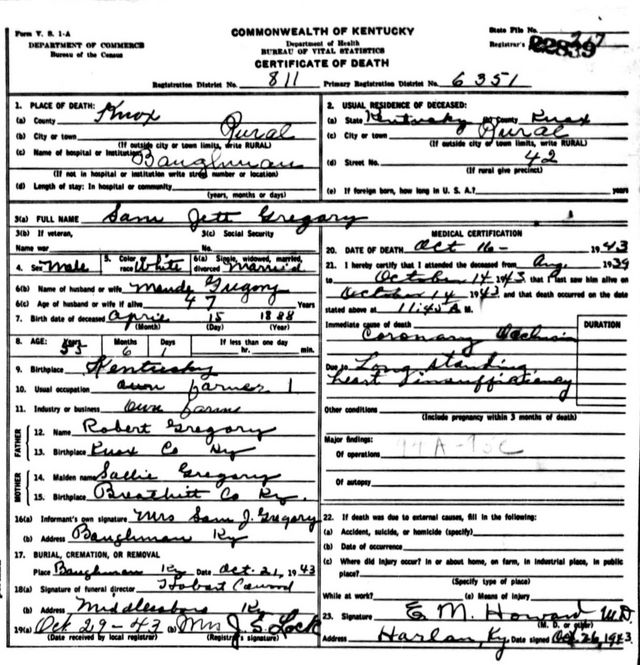 Form V. S. 1-A
DEPARTMENT OF COMMERCE
Bureau of the Census
COMMONWEALTH OF KENTUCKY
Department of Health
BUREAU OF VITAL STATISTICS
CERTIFICATE OF DEATH
State File No.
Registrar's
22839
Registration District No. 811 Primary Registration District No. 6351
1. PLACE OF DEATH:
(a) County Knox
(b) City or town Rural
(If outside city or town limits, write RURAL)
(c) Name of hospital or institution Baughman
(If not in hospital or institution write street number or location)
(d) Length of stay: In hospital or community
(years, months or days)
2. USUAL RESIDENCE OF DECEASED:
(a) State Kentucky (b) County Knox
(c) City or town Rural
(If outside city or town limits, write RURAL)
(d) Street No. 42
(If rural give precinct)
(e) If foreign born, how long in U. S. A.? years
3(a) FULL NAME Sam Jett Gregory
3(b) If veteran,
Name war
3(c) Social Security
No.
4. Sex Male 5. Color race White 6(a) Single, widowed, married, divorced Married
6(b) Name of husband or wife Maude Gregory
6(c) Age of husband or wife if alive 47 Years
7. Birth date of deceased April 15 1888
(Month) (Day) (Year)
8. AGE: Years 55 Months 6 Days 1 If less than one day
hr. min.
9. Birthplace Kentucky
10. Usual occupation own farmer 1
11. Industry or business own farm
FATHER
12. Name Robert Gregory
13. Birthplace Knox Co Ky
MOTHER
14. Maiden name Sallie Gregory
15. Birthplace Breathitt Co Ky.
16(a) Informant's own signature Mrs Sam J. Gregory
(b) Address Baughman Ky
17. BURIAL, CREMATION, OR REMOVAL
Place Baughman Ky Date Oct. 21, 1943
18(a) Signature of funeral director Hobart Cawood
(b) Address Middlesboro Ky
19(a) Oct 29-43 (b) Mrs J. S. Lock
(Date received by local registrar) (Registrar's signature)
MEDICAL CERTIFICATION
20. DATE OF DEATH Oct 16- 1943
21. I hereby certify that I attended the deceased from Aug. 1939
to October 14 1943, that I last saw him alive on
October 14 1943 and that death occurred on the date
stated above at 11:45 A M.
DURATION
Immediate cause of death
Coronary Occlusion
Due to Long standing
heart insufficiency
Other conditions
(Include pregnancy within 3 months of death)
Major findings:
Of operations 94A-95C
Of autopsy
22. If death was due to external causes, fill in the following:
(a) Accident, suicide, or homicide (specify)
(b) Date of occurrence
(c) Where did injury occur? In or about home, on farm, in industrial place, in public
place?
(Specify type of place)
While at work? (e) Means of injury
23. Signature E. M. Howard M.D.
(M. D. or other)
Address Harlan, Ky Date signed Oct 26, 1943